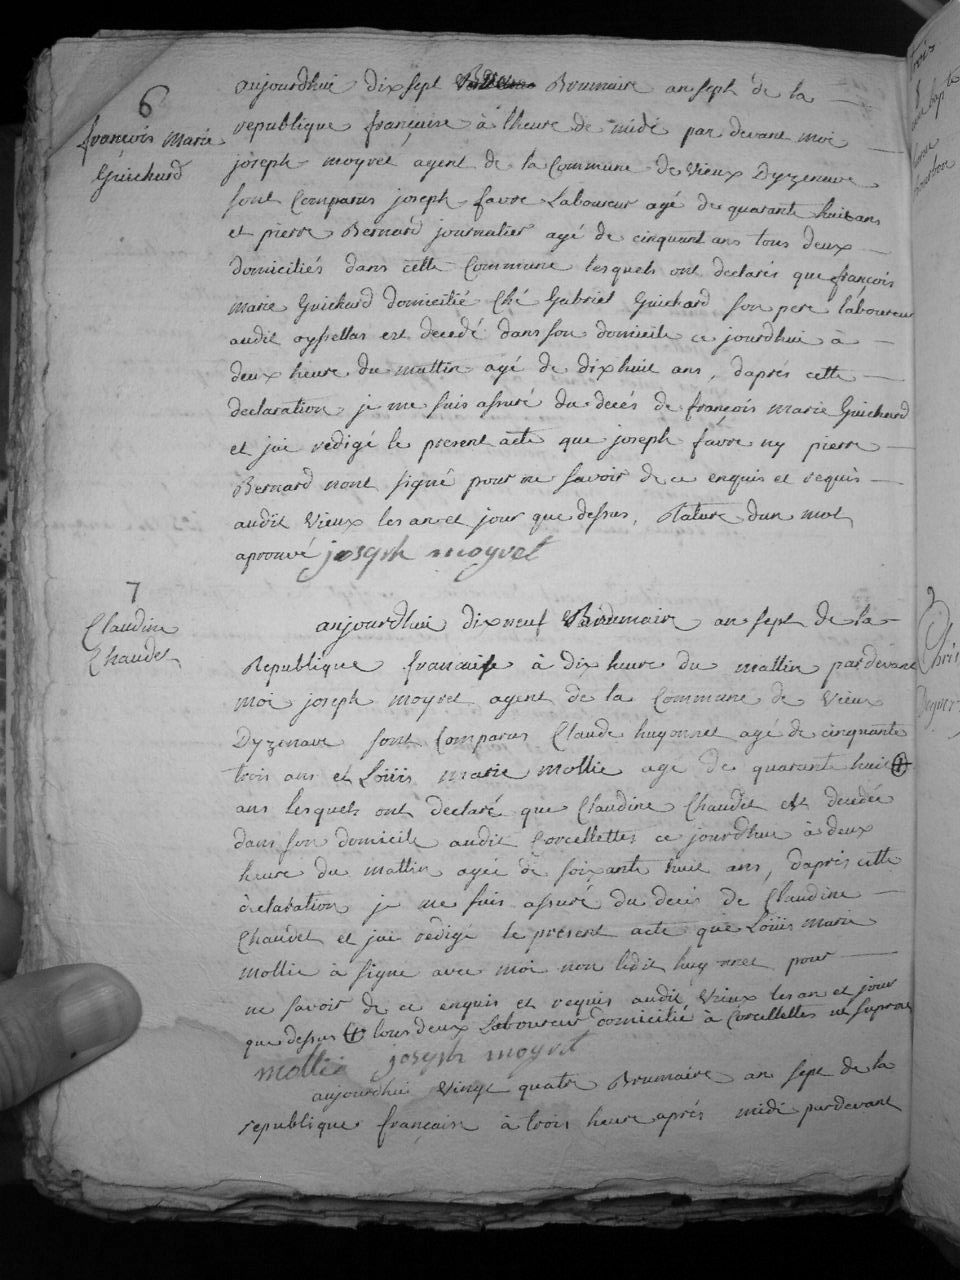 6
françois marie
Guichard
aujourdhui dix sept Brumaire an sept de la
republique française à lheure de midi par devant moi
joseph moyret agent de la Commune de Vieux Dyzenave
sont Comparus joseph favre Laboureur agé de quarante huit ans
et pierre Bernard journalier agé de cinquant ans tous deux
domiciliés dans cette Commune lesquels ont declarés que françois
marie Guichard domicilié Ché Gabriel Guichard son pere laboureur
audit oyssellas est decedé dans son domicile ce jourdhui à
deux heure du mattin agé de dixhuit ans, daprés cette
declaration je me suis assuré du decés de françois marie Guichard
et jai redigé le present acte que joseph favre ny pierre
Bernard nont signé pour ne savoir de ce enquis et requis
audit Vieux les an et jour que dessus, Rature dun mot
aprouvé joseph moyret
7
Claudine
Chaudet
aujourdhui dixneuf Brumaire an sept de la
Republique francaise à dix heure du mattin pardevant
moi joseph moyret agent de la Commune de Vieux
Dyzenave sont Comparus Claude hugonnet agé de cinquante
trois ans et Loüis marie mollie agé de quarante huit
ans lesquels ont declaré que Claudine Chaudet est decedée
dans son domicile audit Corcellettes ce jourdhui à deux
heure du mattin agée de soixante huit ans, daprés cette
declaration je me suis assuré du decés de Claudine
Chaudet et jai redigé le present acte que Loüis marie
mollie à signe avec moi non ledit hugonnet pour
ne savoir de ce enquis et requis audit Vieux les an et jour
que dessus tous deux Laboureur domicilié à Corcellettes ut supra
mollie joseph moyret
aujourdhui Vingt quatre Brumaire an sept de la
republique française à trois heure aprés midi pardevant